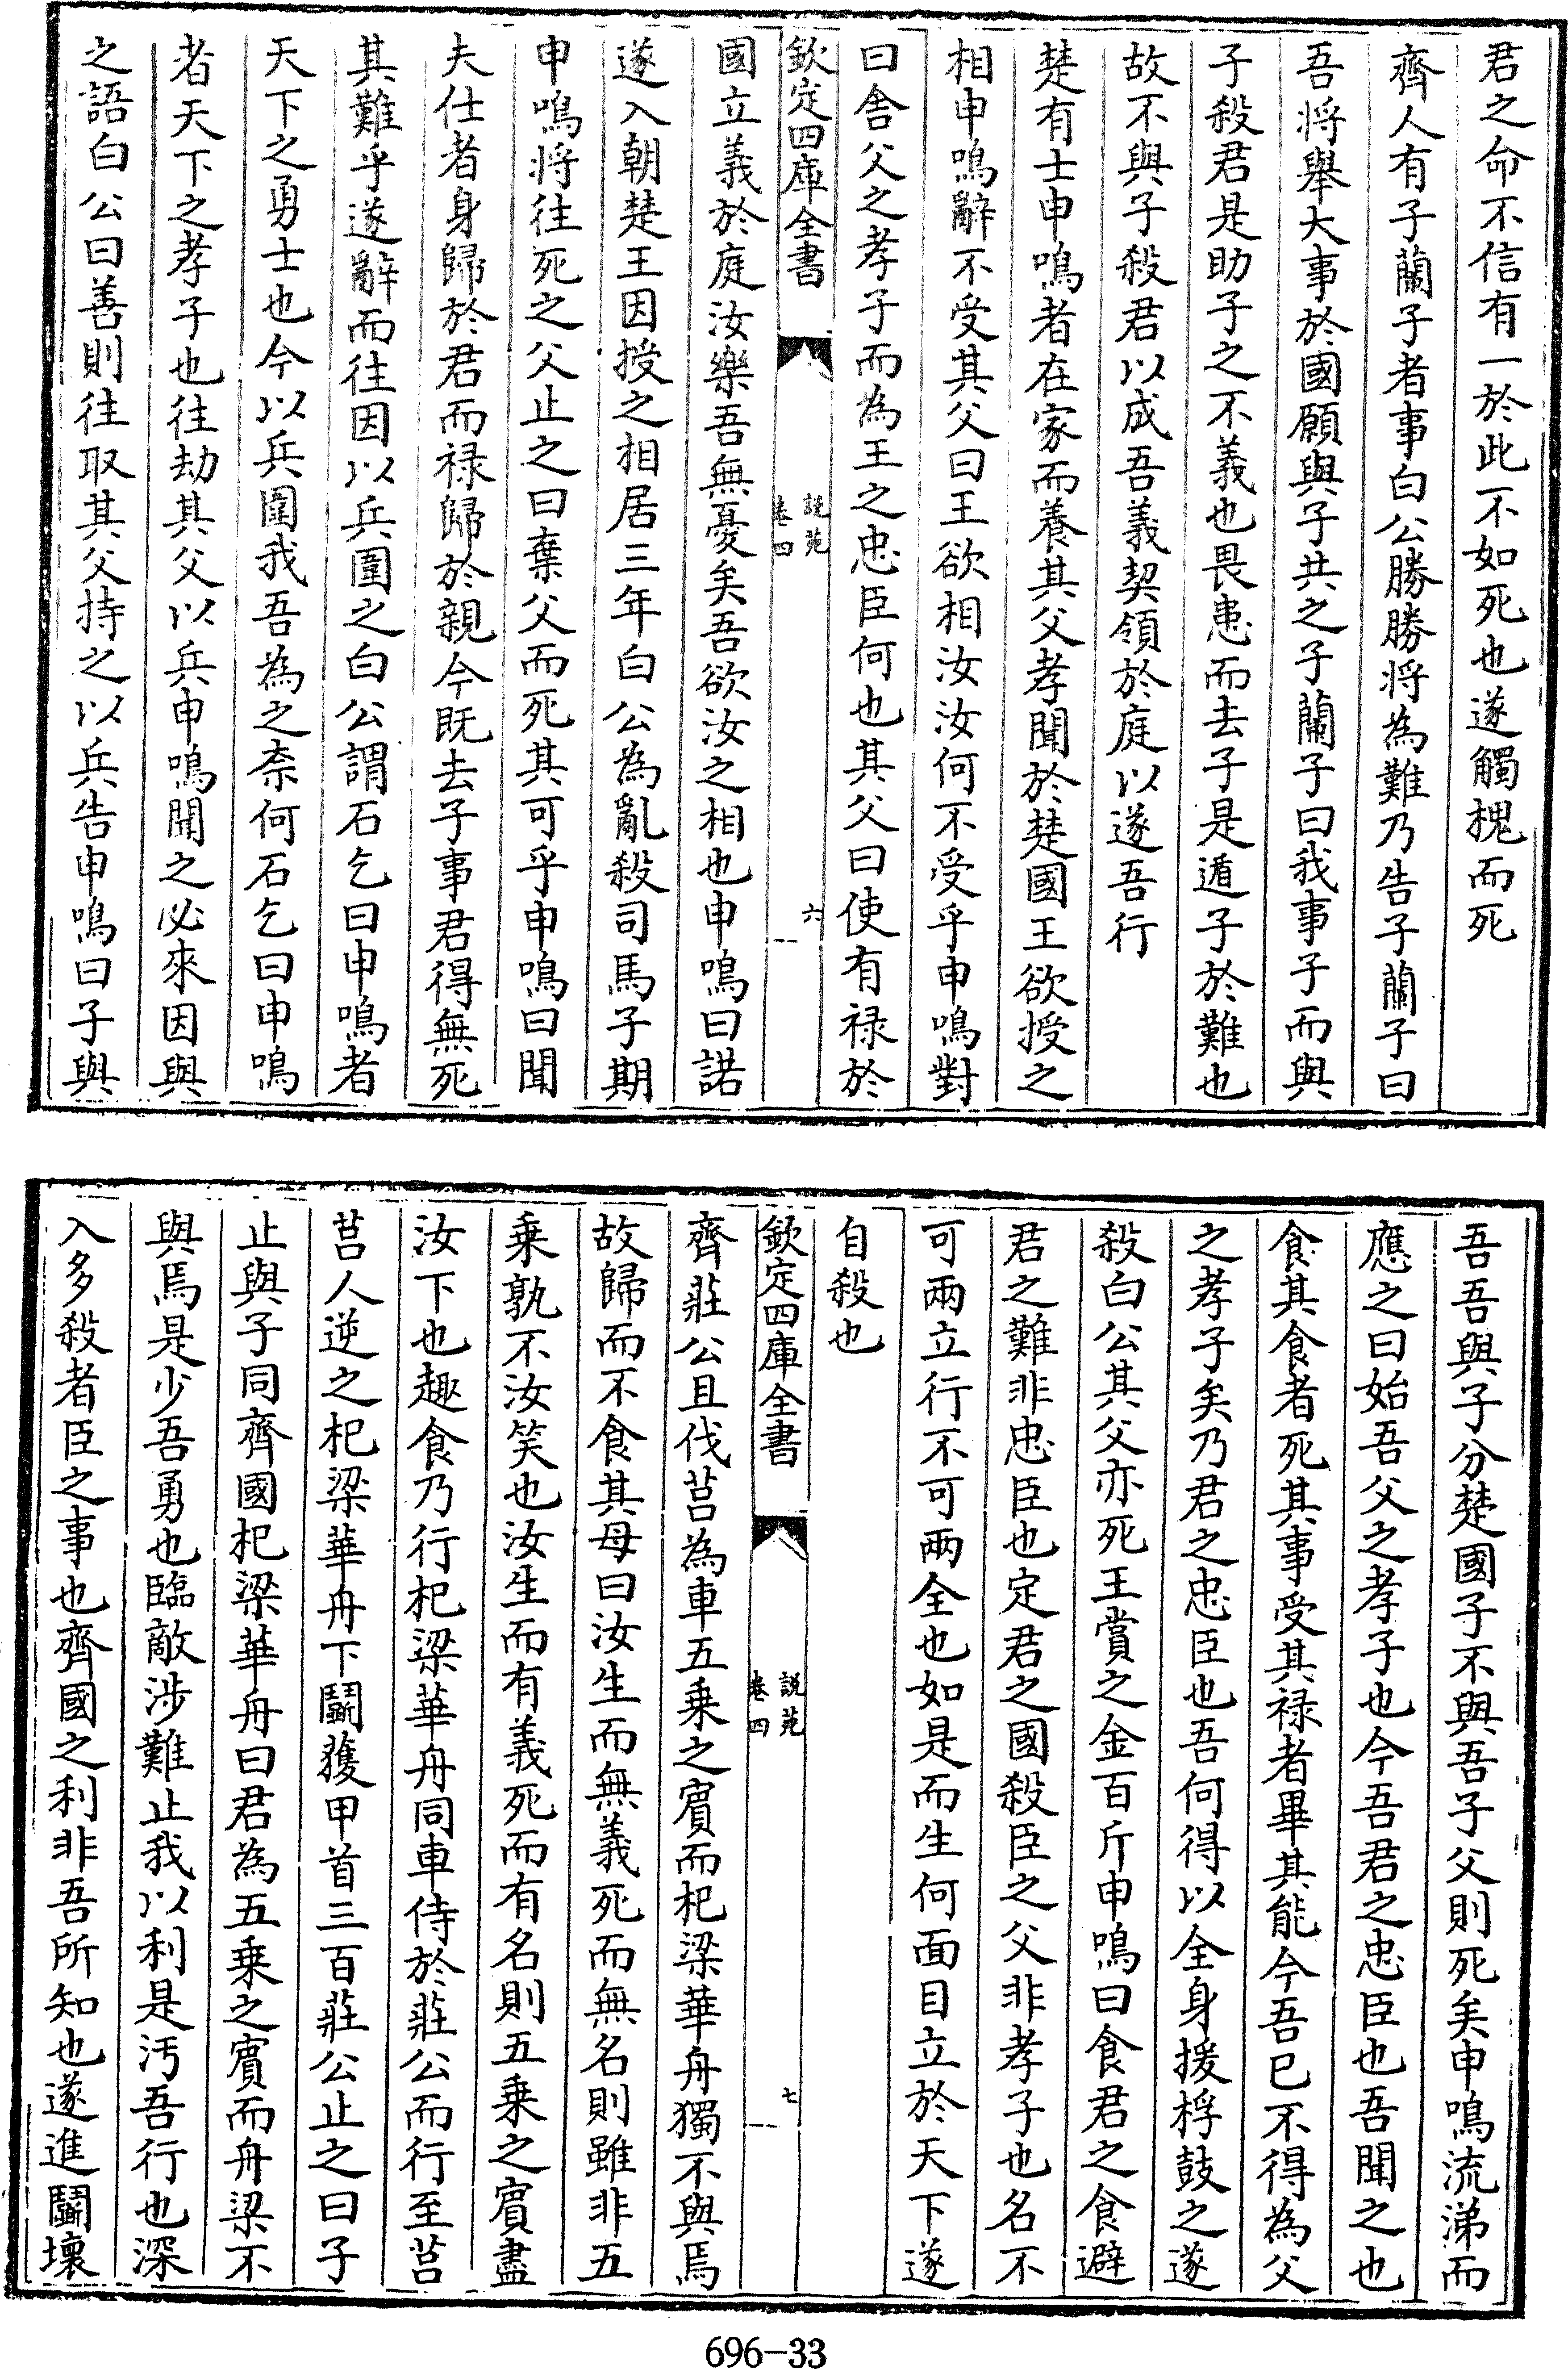 君之命不信有一於此不如死也遂觸槐而死
齊人有子蘭子者事白公勝勝將為難乃告子蘭子曰
吾將舉大事於國願與子共之子蘭子曰我事子而與
子殺君是助子之不義也畏患而去子是遁子於難也
故不與子殺君以成吾義契領於庭以遂吾行
楚有士申鳴者在家而養其父孝聞於楚國王欲授之
相申鳴辭不受其父曰王欲相汝汝何不受乎申鳴對
曰舍父之孝子而為王之忠臣何也其父曰使有祿於
欽定四庫全書
說苑
卷四
六
國立義於庭汝樂吾無憂矣吾欲汝之相也申鳴曰諾
遂入朝楚王因授之相居三年白公為亂殺司馬子期
申鳴將往死之父止之曰棄父而死其可乎申鳴曰聞
夫仕者身歸於君而祿歸於親今既去子事君得無死
其難乎遂辭而往因以兵圍之白公謂石乞曰申鳴者
天下之勇士也今以兵圍我吾為之奈何石乞曰申鳴
者天下之孝子也往劫其父以兵申鳴聞之必來因與
之語白公曰善則往取其父持之以兵告申鳴曰子與
吾吾與子分楚國子不與吾子父則死矣申鳴流涕而
應之曰始吾父之孝子也今吾君之忠臣也吾聞之也
食其食者死其事受其祿者畢其能今吾已不得為父
之孝子矣乃君之忠臣也吾何得以全身援桴鼓之遂
殺白公其父亦死王賞之金百斤申鳴曰食君之食避
君之難非忠臣也定君之國殺臣之父非孝子也名不
可兩立行不可兩全也如是而生何面目立於天下遂
自殺也
欽定四庫全書
說苑
卷四
七
齊莊公且伐莒為車五乘之賓而杞梁華舟獨不與焉
故歸而不食其母曰汝生而無義死而無名則雖非五
乘孰不汝笑也汝生而有義死而有名則五乘之賓盡
汝下也趣食乃行杞梁華舟同車侍於莊公而行至莒
莒人逆之杞梁華舟下鬭獲甲首三百莊公止之曰子
止與子同齊國杞梁華舟曰君為五乘之賓而舟梁不
與焉是少吾勇也臨敵涉難止我以利是汚吾行也深
入多殺者臣之事也齊國之利非吾所知也遂進鬭壞
696-33